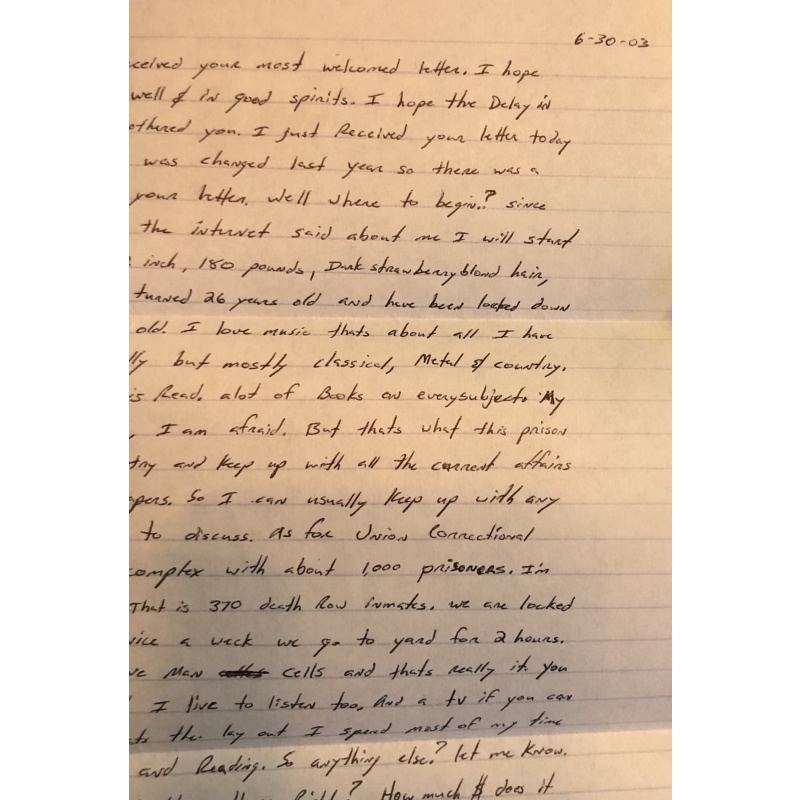 6-30-03
ceived your most welcomed letter. I hope
well & in good spirits. I hope the Delay in
othered you. I just Received your letter today
was changed last year so there was a
your letter. Well where to begin.? since
the internet said about me I will start
inch, 180 pounds, Dark strawberry blond hair,
turned 26 years old and have been locked down
old. I love music thats about all I have
lly but mostly classical, Metal & country.
is Read. alot of Books on everysubject. My
, I am afraid. But thats what this prison
try and Keep up with all the current affairs
apers. So I can usually Keep up with any
to discuss. As for Union Correctional
complex with about 1,000 prisoners. I'm
That is 370 death Row inmates. we are locked
vice a week we go to yard for 2 hours.
ve Man cells and thats really it. you
I live to listen too, And a tv if you can
ts the lay out I spend most of my time
and Reading. So anything else? let me Know.
Right? How much $ does it